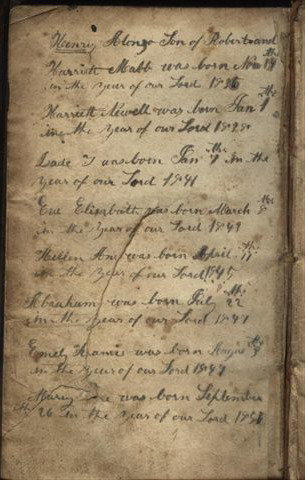 Henry Alonzo Son of Robert and
Harriett Mabb was born Nov 19 the
in the year of our Lord 1836
Harriett Newell was born Jan 1 the
in the year of our Lord
was born Jan 7 the in the
year of our Lord 1841
Eve Elizabeth was born March 8 th
in the year of our Lord 1843
Hellen Ann was born April 17 th
in the year of our Lord 1845
Abraham was born July 22 th
in the year of our Lord 1847
was born
in the year of our Lord 1849
was born September
the 26 in the year of our Lord